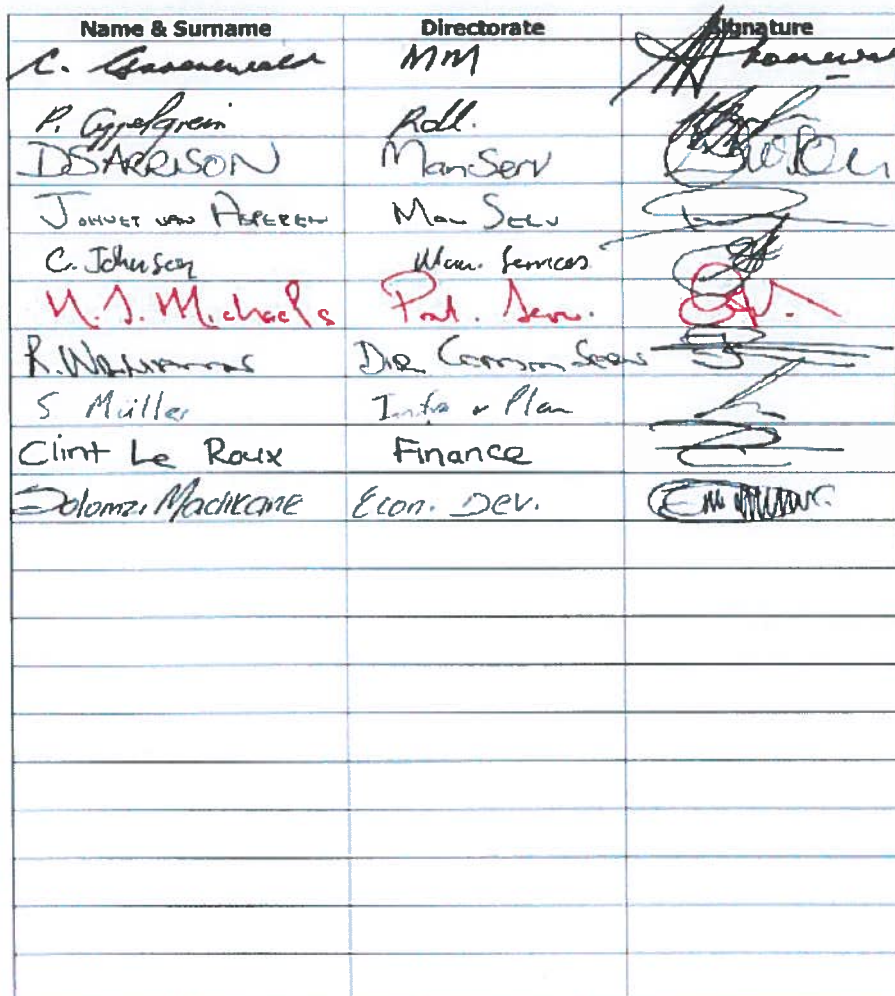 Name & Surname Directorate Signature
C. Groenewald MM
P. Appelgrein
D S ARRISON Man Serv
JOHNET VAN ASPEREN Man Serv
C. Johnson Man. Services
N. S. Michaels Prot. Serv.
R. Williams Dir Comm Serv
S Müller Infra & Plan
Clint Le Roux Finance
Solomzi Madikane Econ. Dev.